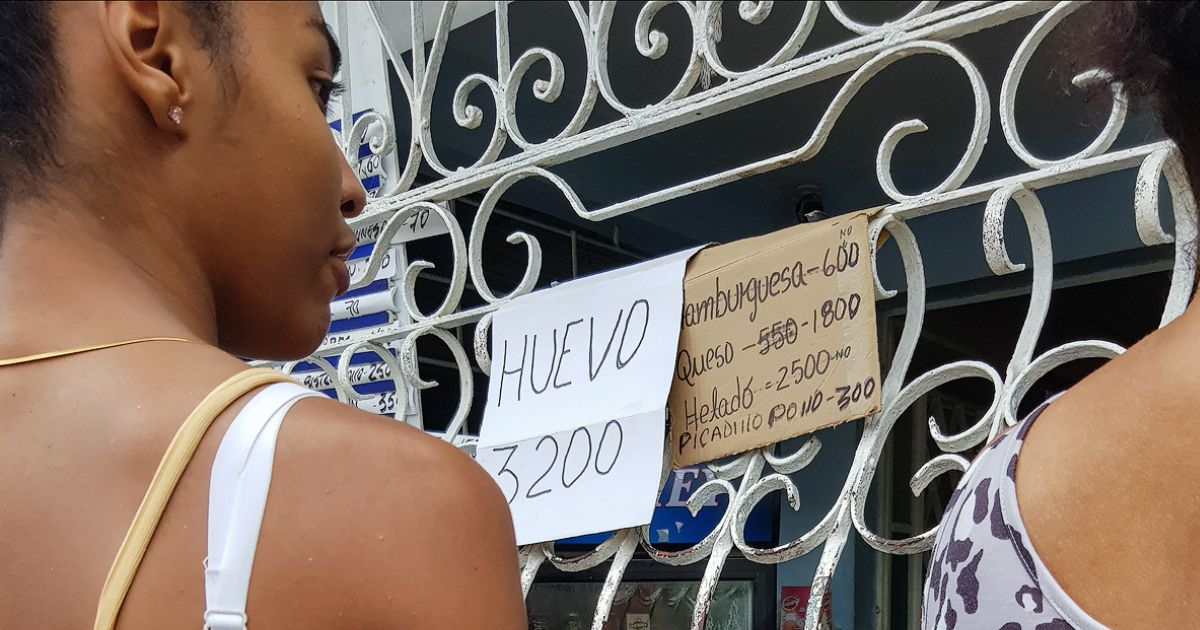 HUEVO
3200
NO
Hamburguesa-600
Queso -550-1800
Helado =2500-NO
PICADIllO POllO-300